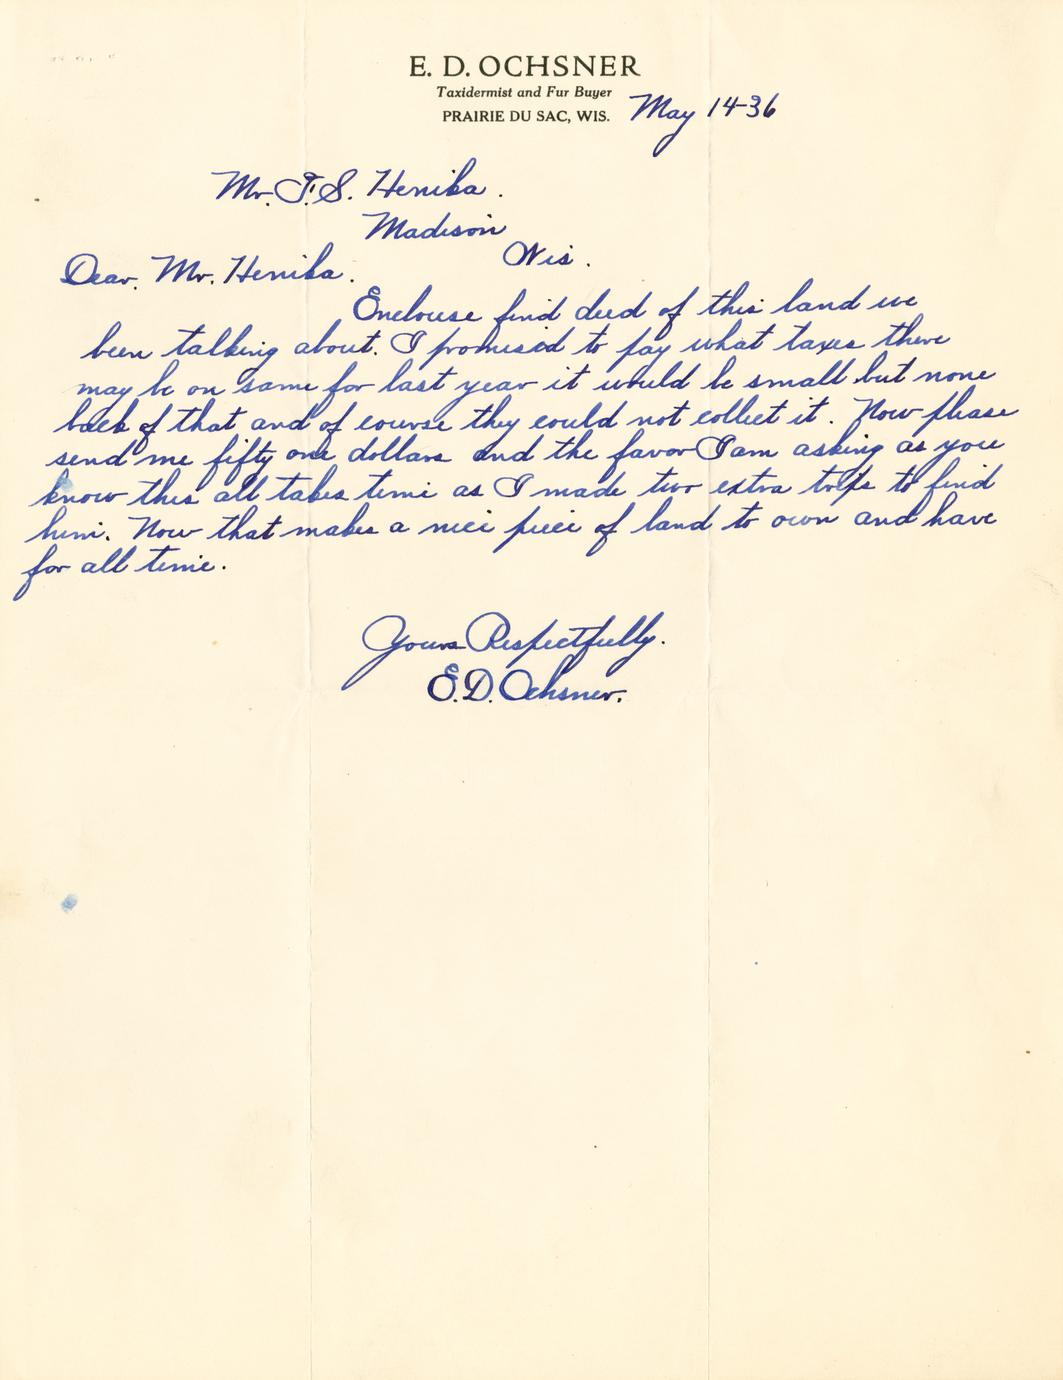 E. D. OCHSNER
Taxidermist and Fur Buyer
PRAIRIE DU SAC, WIS. May 14-36
Mr. F. S. Henika.
Madison
Wis.
Dear. Mr. Henika.
Enclouse find deed of this land we
been talking about. I promised to pay what taxes there
may be on same for last year it would be small but none
back of that and of course they could not collect it. Now please
send me fifty one dollars and the favor I am asking as you
know this all takes time as I made two extra trips to find
him. Now that makes a nice piece of land to own and have
for all time.
Yours Respectfully.
E.D. Ochsner.